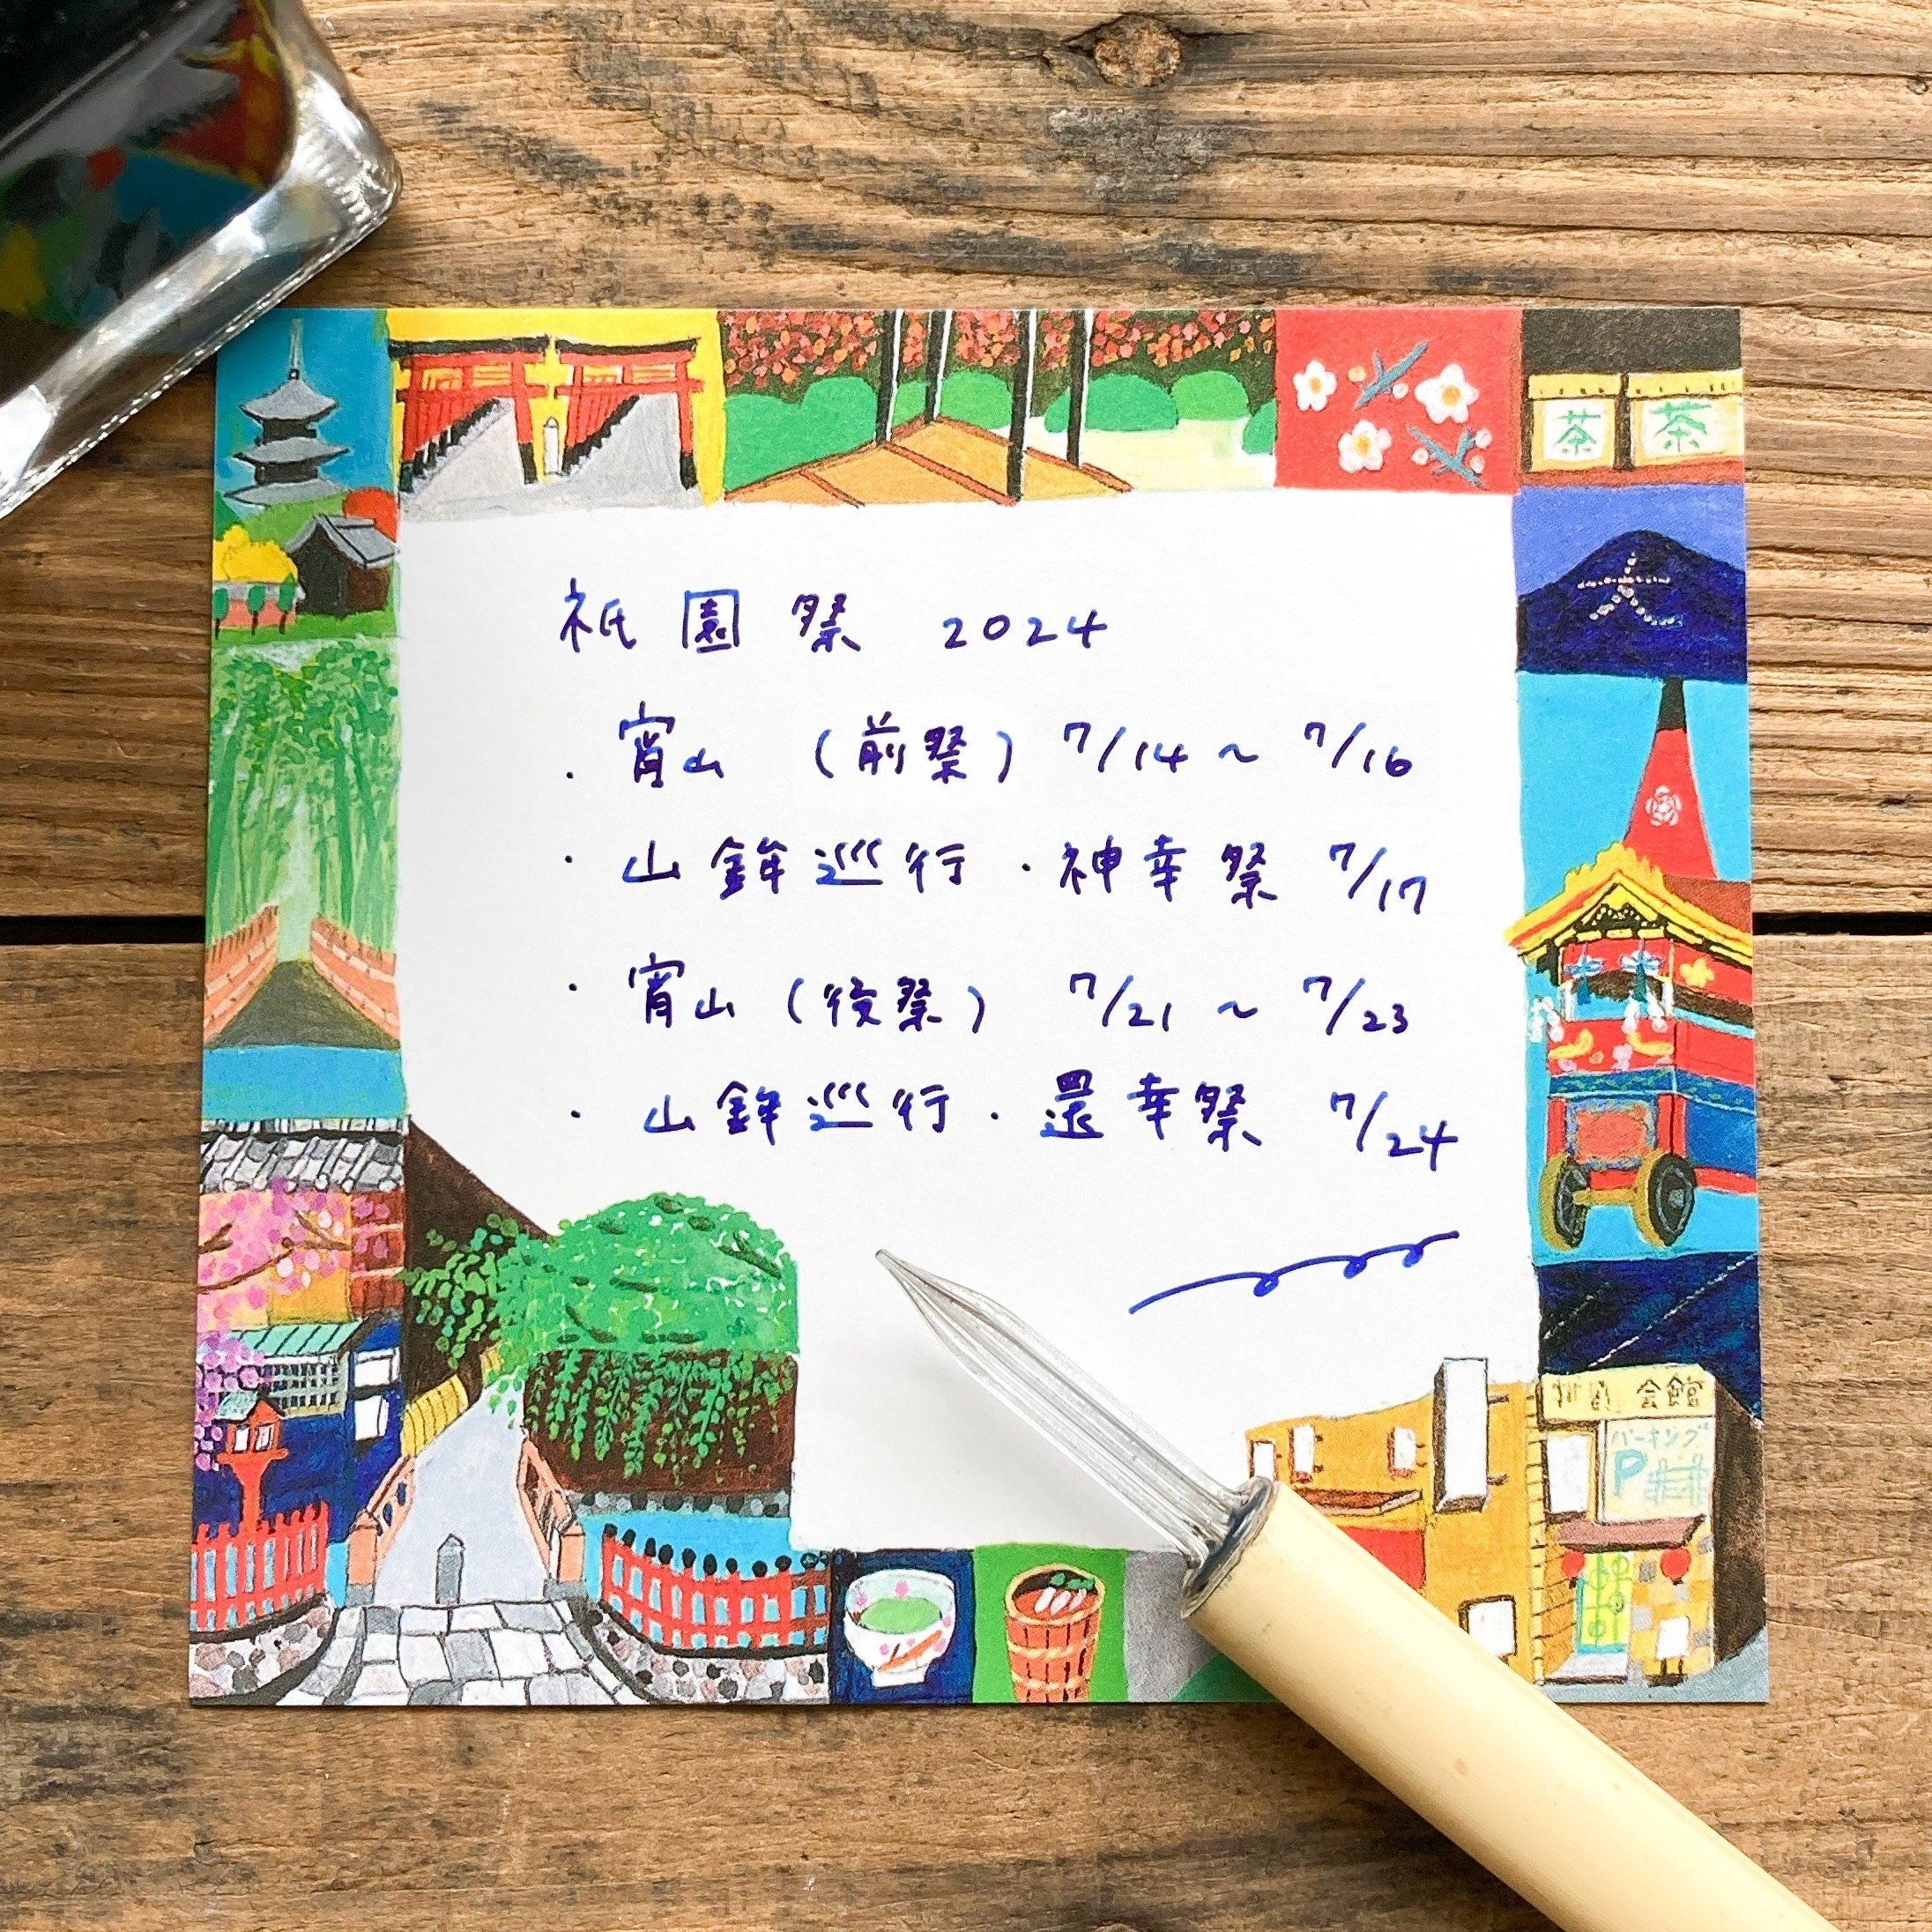 茶 茶
大
祇園祭 2024
・宵山 (前祭) 7/14 ~ 7/16
・山鉾巡行・神幸祭 7/17
・宵山 (後祭) 7/21 ~ 7/23
・山鉾巡行・還幸祭 7/24
会館
パーキング
P